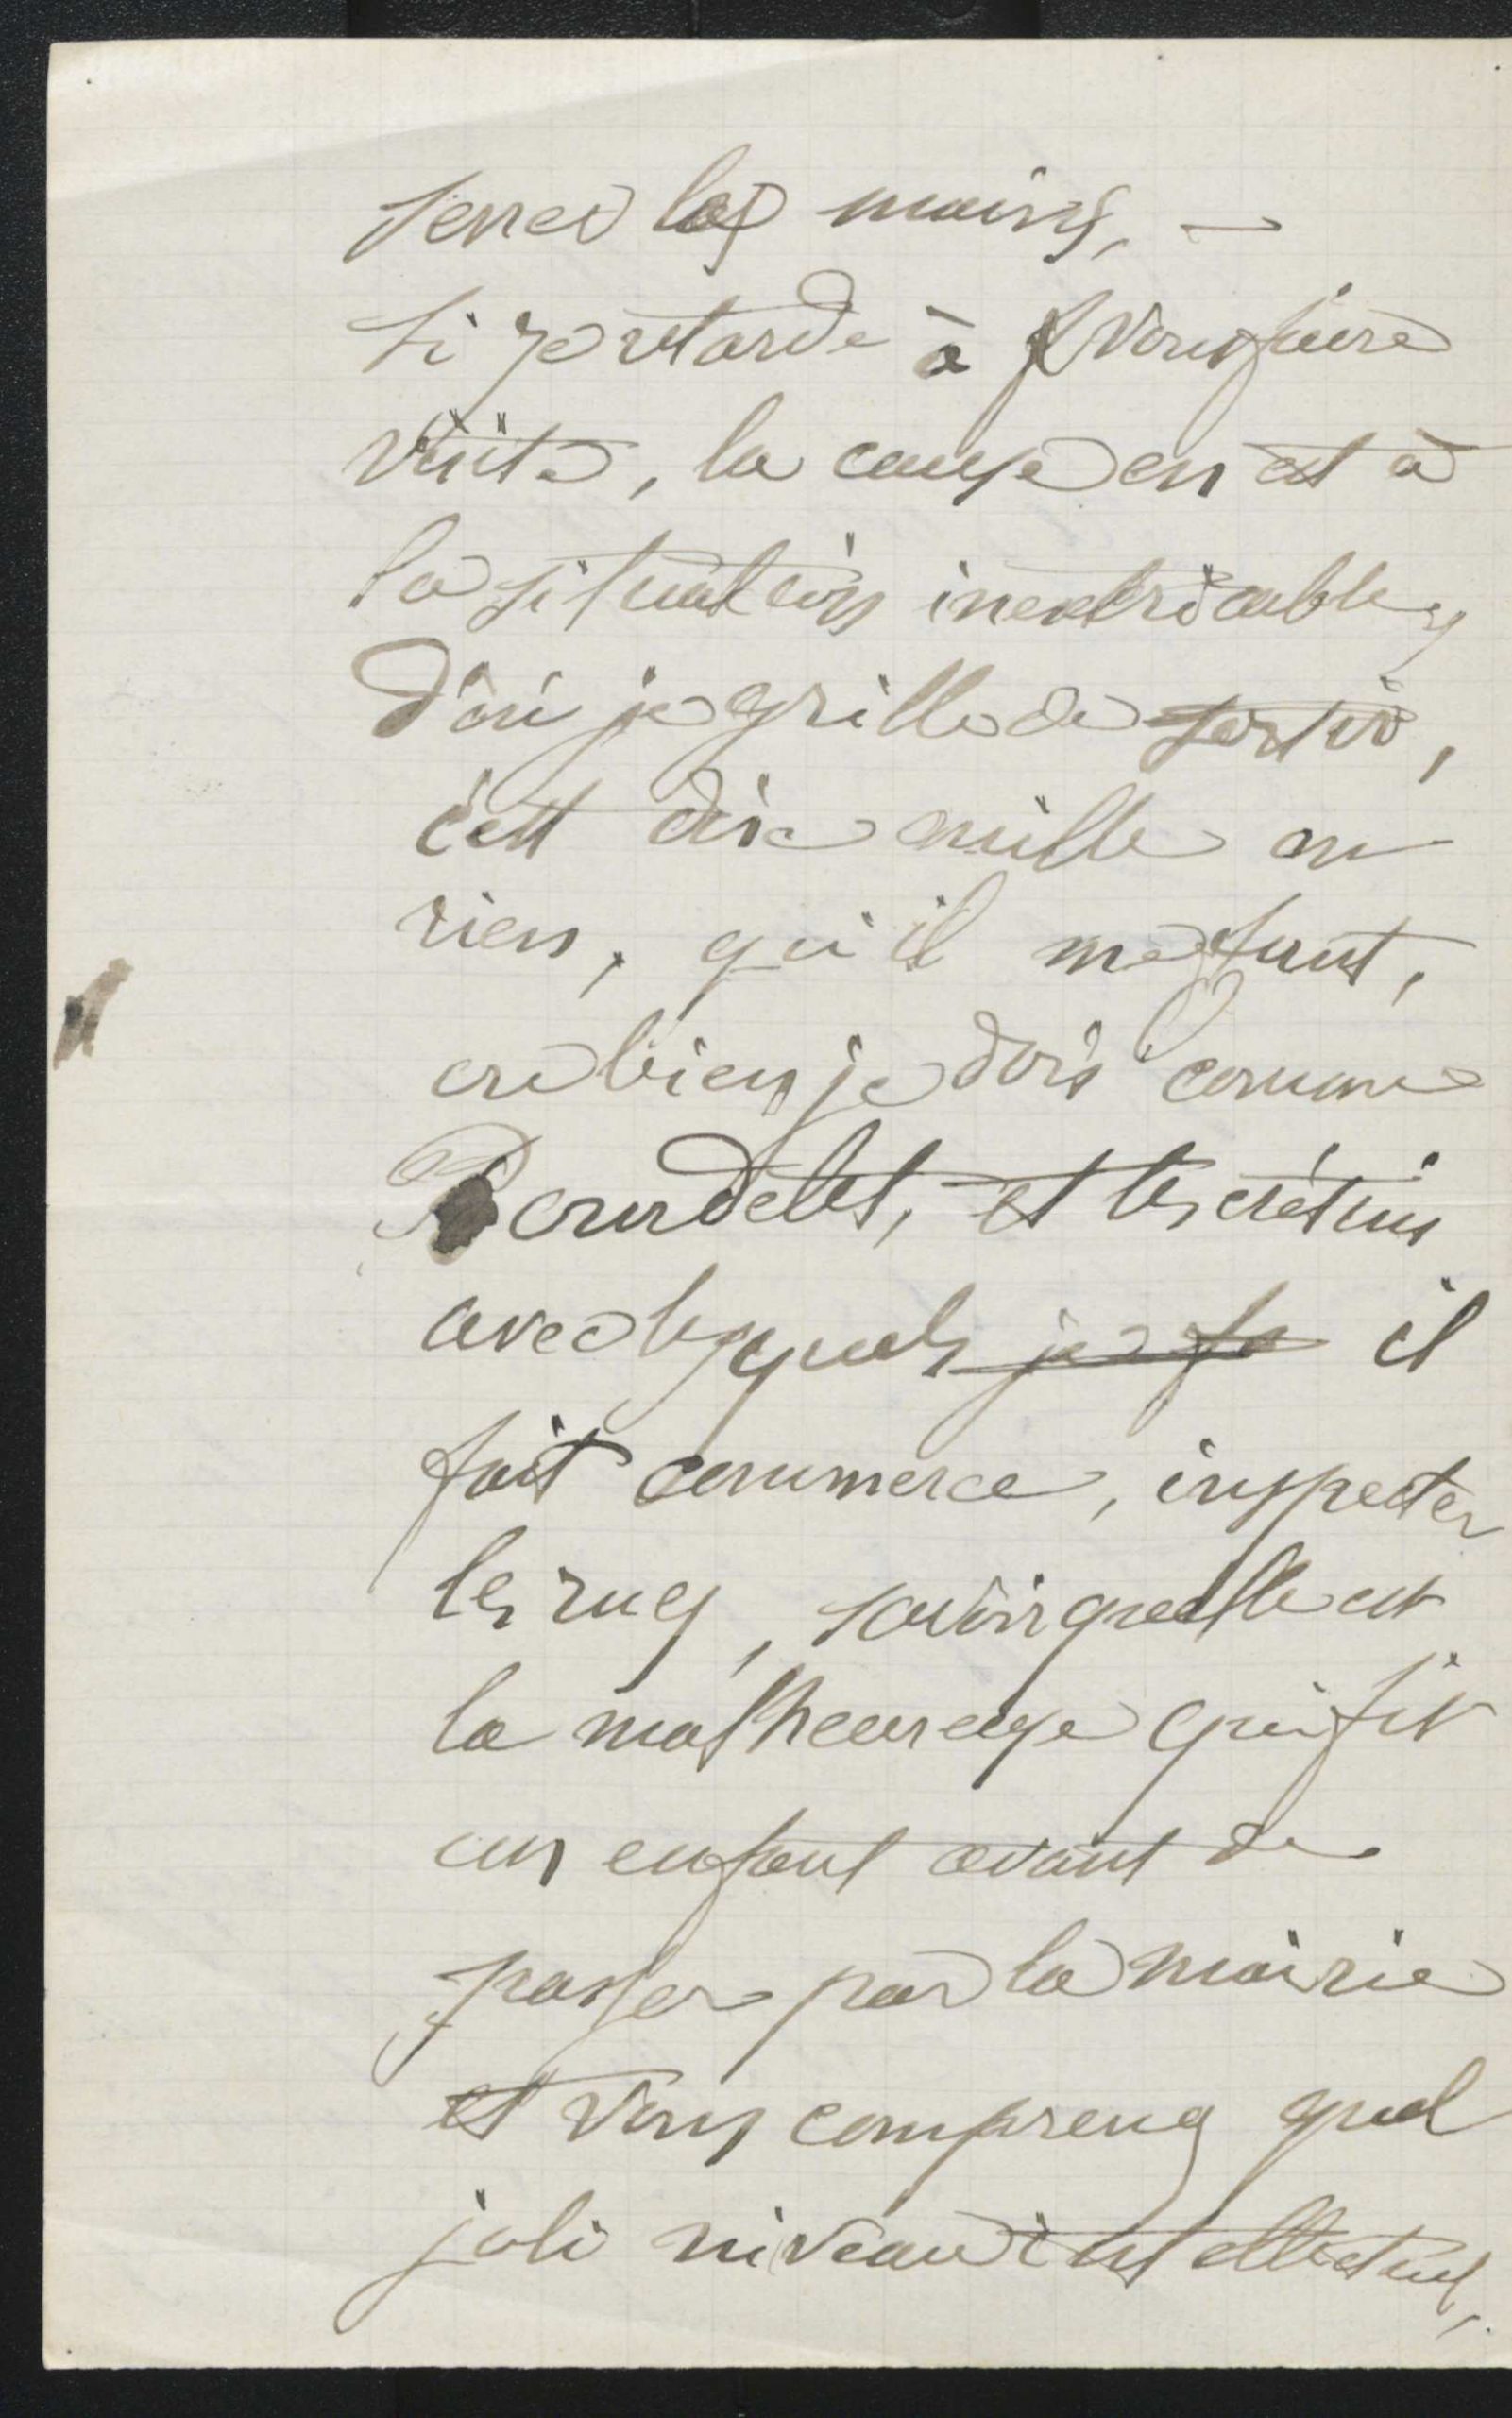 serrer les mains, —
Si je retarde à vous faire
visite, la cause en est à
la situation inextricable
d'où je grille de sortir,
c'est dix mille ou
rien, qu'il me faut,
ou bien je dois comme
Bourdelet, et les crétins
avec lesquels je fa il
fait commerce, inspecter
les rues, savoir quelle est
la malheureuse qui fit
un enfant avant de
passer par la mairie
et vous comprenez quel
joli niveau intellectuel,